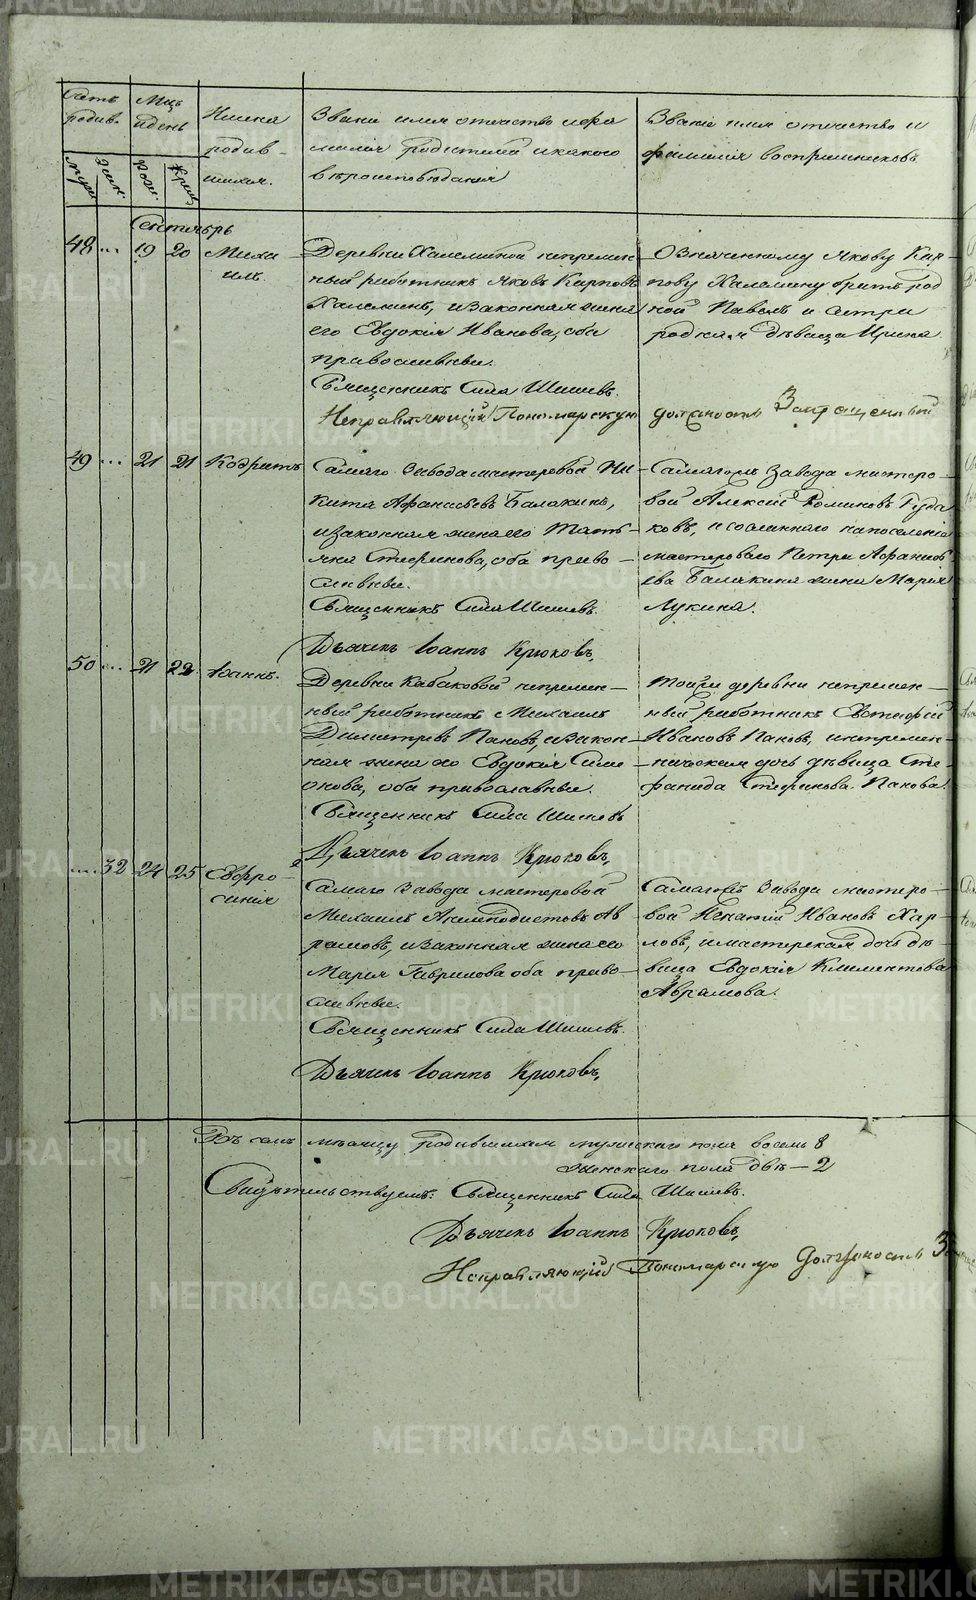 Счетъ родив.
Мцъ и день
Имена родив-
шихся.
Званіе имя отечество и фа-
милія родителей и какого
вѣроисповѣданія
Званіе имя отечество и
фамилія воспріемниковъ
Муж.
Жен.
Рож.
Крещ.
Сентябрь
48 ... 19 20 Миха-
илъ.
Деревни Халеминой непремен-
ный работникъ Яковъ Карповъ
Халеминъ, и законная жена
его Евдокія Иванова, оба
православные.
Священникъ Сила Шишевъ.
Исправляющій Пономарскую должность
Означенному Якову Кар-
пову Халемину братъ род-
ной Павелъ и сестра
родная дѣвица Ирина
49 ... 21 21 Кодратъ
Самаго Завода мастеровой Ни-
кита Афанасьевъ Балакинъ,
и законная жена его Тать-
яна Стефанова, оба право-
славные.
Священникъ Сила Шишевъ.
Дьячекъ Іоаннъ Крюковъ,
Самагожъ Завода мастеро-
вой Алексій
ковъ, и сосланнаго на поселеніе
мастероваго Петра Афанась-
ева Балакина жена Марія
Лукина.
50 ... 21 22 Іоаннъ.
Деревни Кабаковой непремен-
ный работникъ Михаилъ
Димитріевъ Пановъ, и закон-
ная жена его Евдокія Сим-
онова, оба православные.
Священникъ Сила Шишевъ
Дьячекъ Іоаннъ Крюковъ,
Той же деревни непремен-
ный работникъ Евстафій
Ивановъ Пановъ, и непремен-
ническая дочь дѣвица Сте-
фанида Стефанова Панова.
... 32 24 25 Евфро-
синія
Самаго Завода мастеровой
Михаилъ Акиндистовъ Ав-
рамовъ, и законная жена его
Марія Гаврилова оба право-
славные.
Священникъ Сила Шишевъ.
Дьячекъ Іоаннъ Крюковъ,
Самагожъ Завода мастеро-
вой Игнатій Ивановъ Кар-
повъ, и мастерская дочь дѣ-
вица Евдокія Климентова
Аврамова.
Въ семъ мѣсяцу родившихся мужескаго пола восемь 8
женскаго пола двѣ — 2
Свидѣтельствуемъ: Священникъ Сила Шишевъ.
Дьячекъ Іоаннъ Крюковъ,
Исправляющій Пономарскую Должность
METRIKI.GASO-URAL.RU